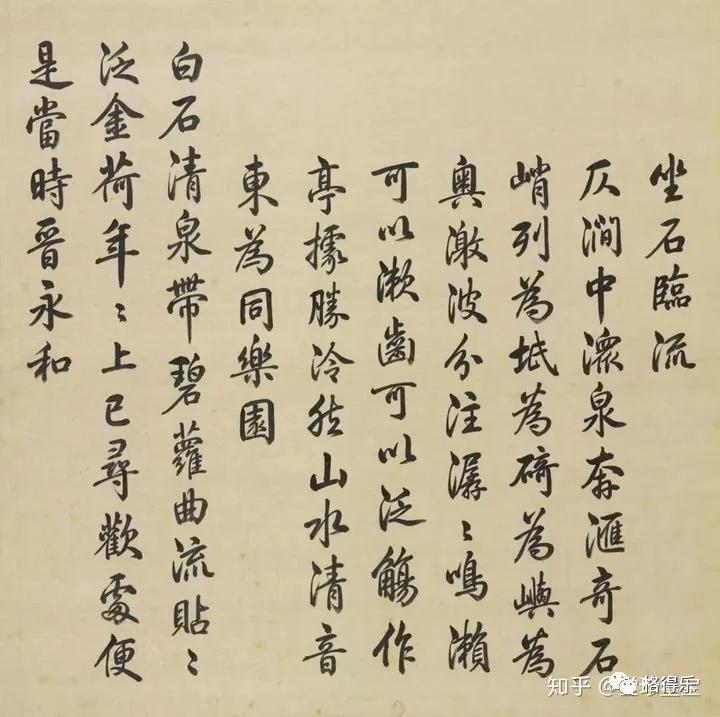 坐石臨流
仄澗中泉奔滙奇石
峭列為坻為碕為嶼為
奥激波分注潺〻鳴瀨
可以漱齒可以泛觴作
亭據勝泠然山水清音
東為同樂園
白石清泉帶碧蘿曲流貼〻
泛金荷年〻上巳尋歡處便
是當時晉永和
知乎 @
珞得乐